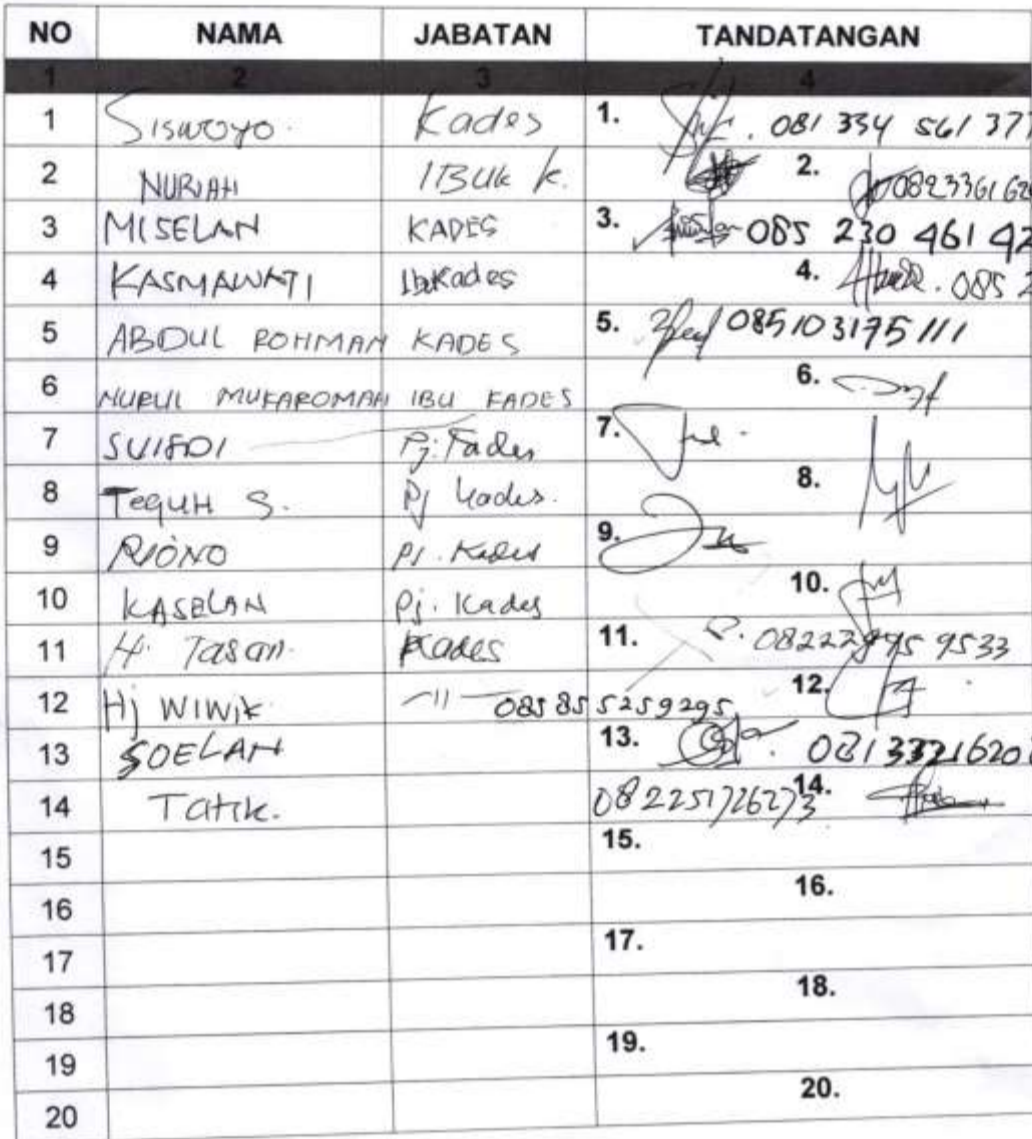 NO NAMA JABATAN TANDATANGAN
1 2 3 4
1 SISWOYO. Kades 1. 081 334 561 377
2 NURIAH IBUK K. 2. 082336162
3 MISELAN KADES 3. 085 230 461 42
4 KASMAWATI Ibu Kades 4. 085 2
5 ABDUL ROHMAN KADES 5. 085103175111
6 NURUL MUKAROMAH IBU KADES 6.
7 Pj. Kades 7.
8 TEGUH S. Pj Kades. 8.
9 RIONO Pj. Kades 9.
10 KASELAN Pj. Kades 10.
11 H. Tasan. Kades 11. 082229959533
12 Hj WIWIK -11- 085855259295 12.
13 SOELAN 13. 0813321620
14 Tatik. 082251726273 14.
15 15.
16 16.
17 17.
18 18.
19 19.
20 20.